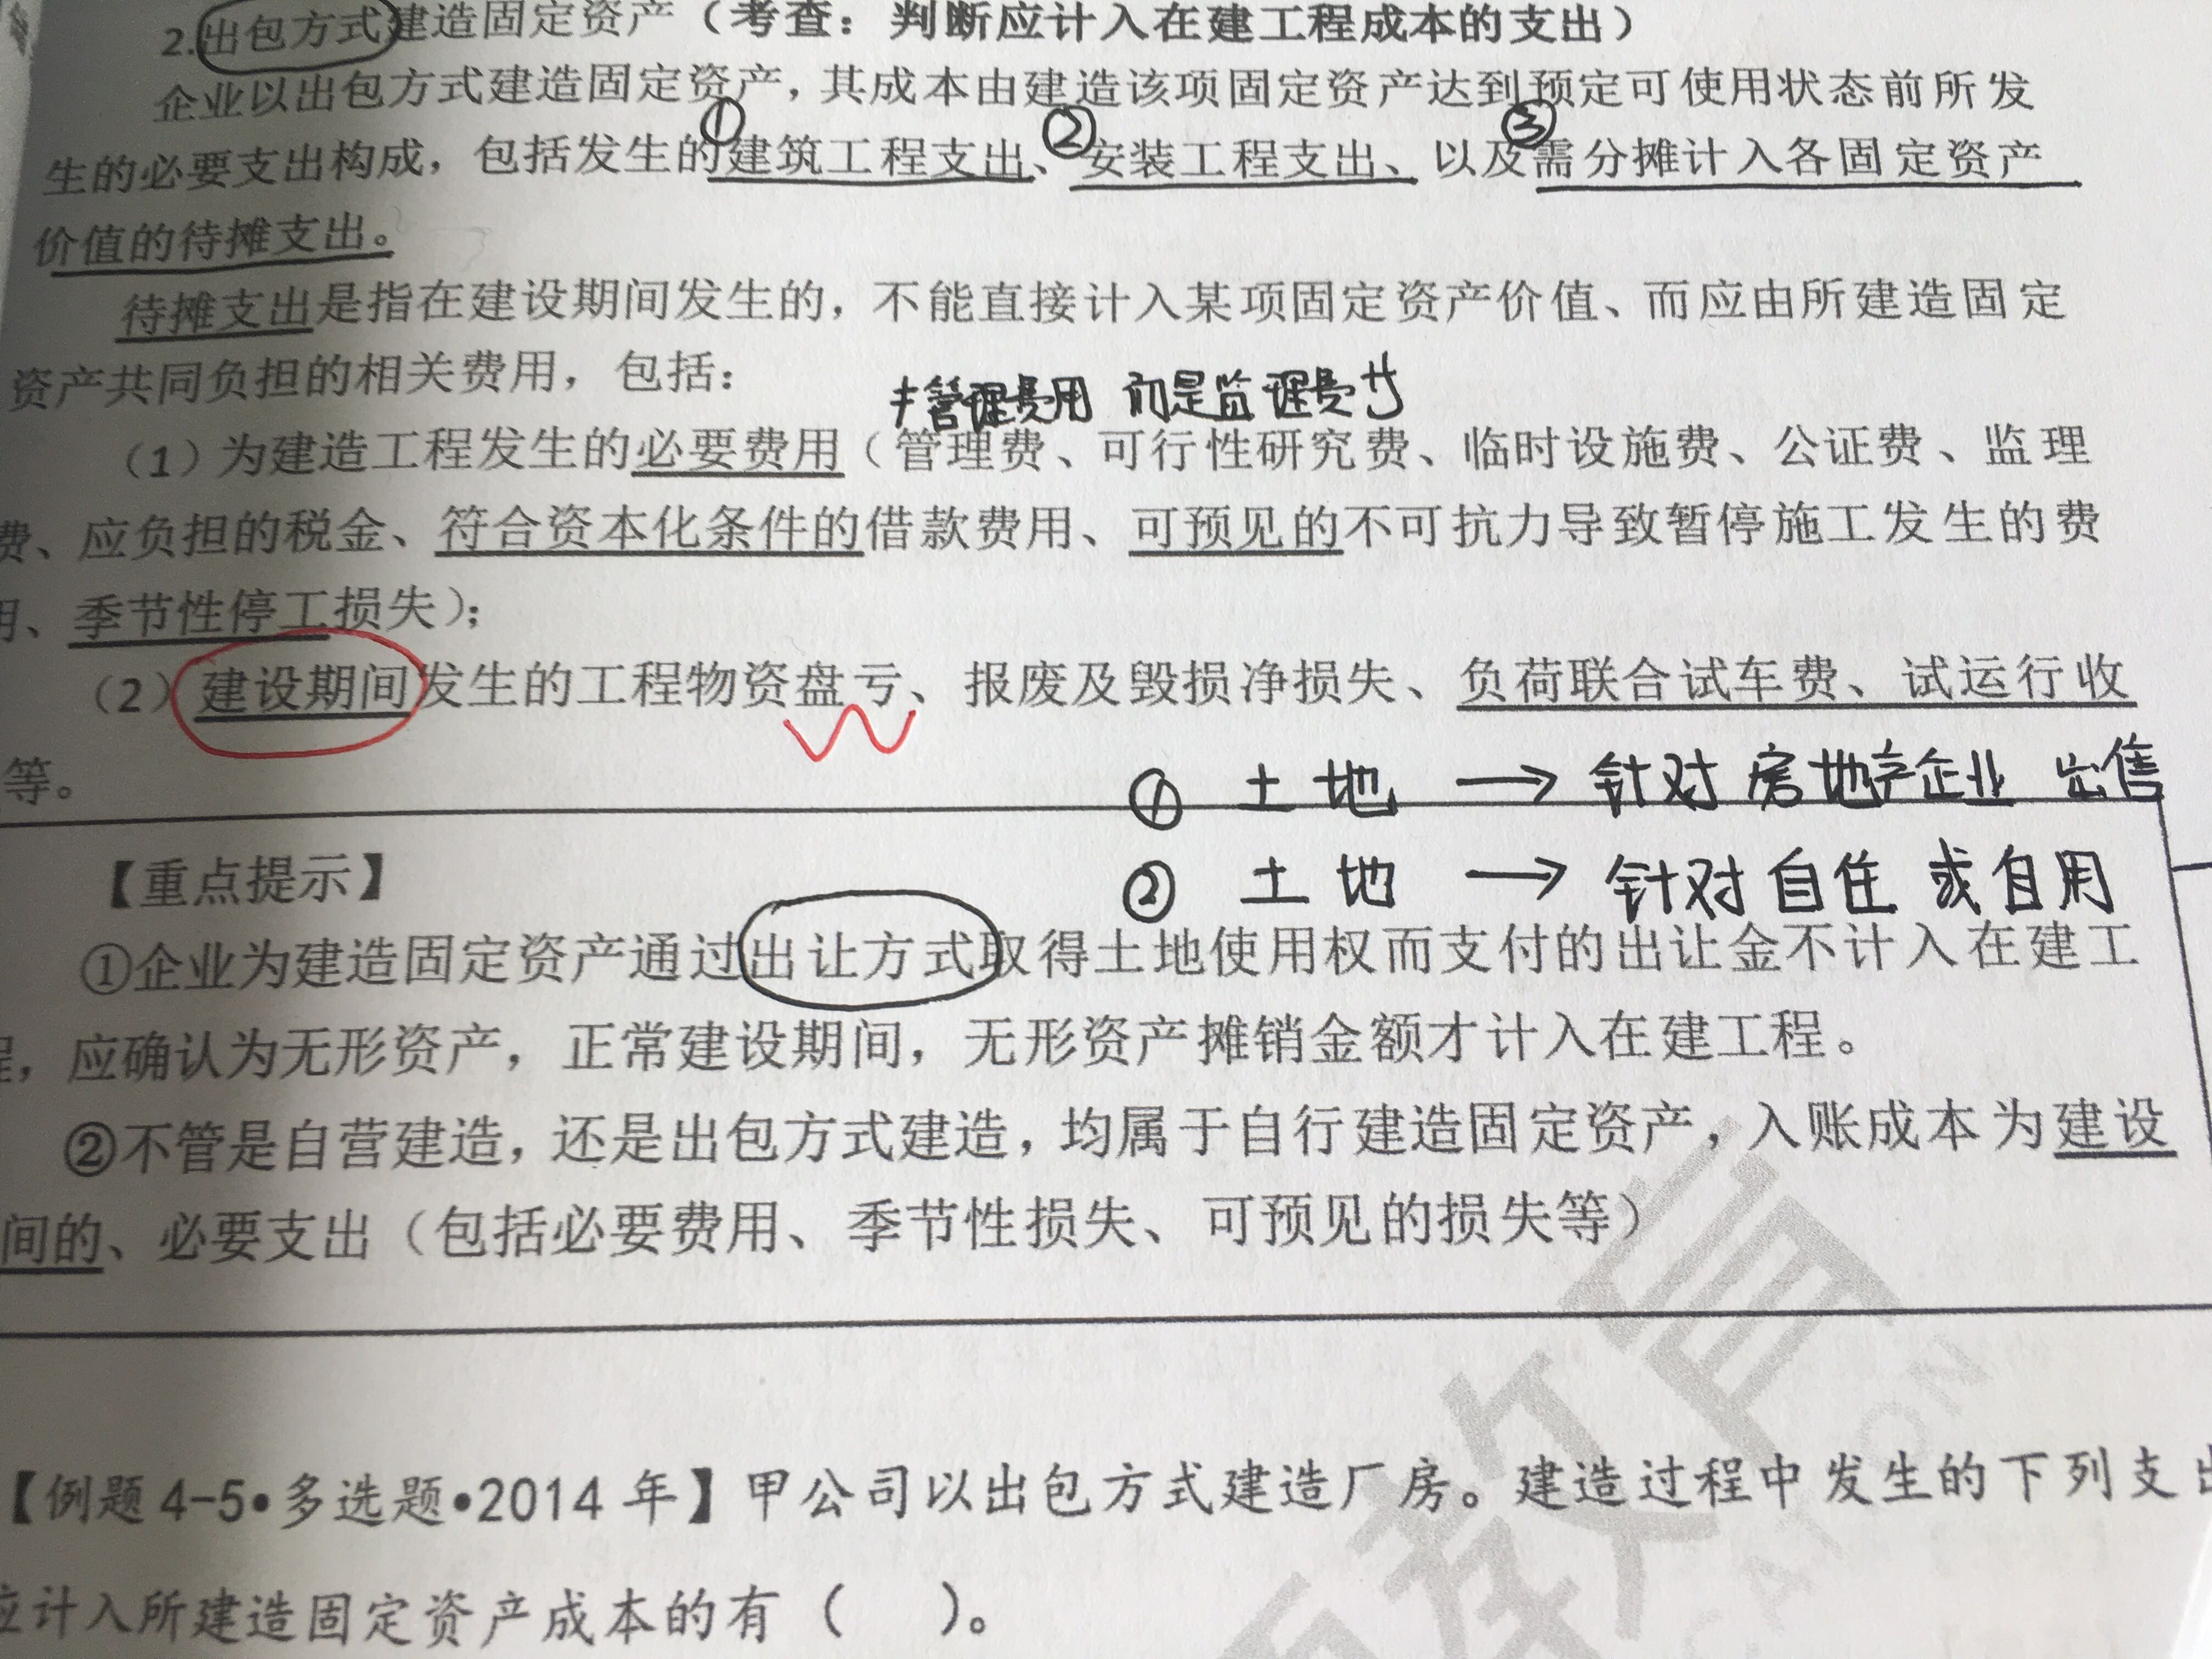 2.出包方式建造固定资产（考查：判断应计入在建工程成本的支出）
企业以出包方式建造固定资产，其成本由建造该项固定资产达到预定可使用状态前所发
① ② ③
生的必要支出构成，包括发生的建筑工程支出、安装工程支出、以及需分摊计入各固定资产
价值的待摊支出。
待摊支出是指在建设期间发生的，不能直接计入某项固定资产价值、而应由所建造固定
资产共同负担的相关费用，包括：
≠管理费用 而是监理费
（1）为建造工程发生的必要费用（管理费、可行性研究费、临时设施费、公证费、监理
费、应负担的税金、符合资本化条件的借款费用、可预见的不可抗力导致暂停施工发生的费
用、季节性停工损失）；
（2）建设期间发生的工程物资盘亏、报废及毁损净损失、负荷联合试车费、试运行收
等。
① 土地 → 针对房地产企业 出售
② 土地 → 针对自住或自用
【重点提示】
①企业为建造固定资产通过出让方式取得土地使用权而支付的出让金不计入在建工
程，应确认为无形资产，正常建设期间，无形资产摊销金额才计入在建工程。
②不管是自营建造，还是出包方式建造，均属于自行建造固定资产，入账成本为建设
间的、必要支出（包括必要费用、季节性损失、可预见的损失等）
【例题4-5•多选题•2014年】甲公司以出包方式建造厂房。建造过程中发生的下列支出
应计入所建造固定资产成本的有（ ）。
教育